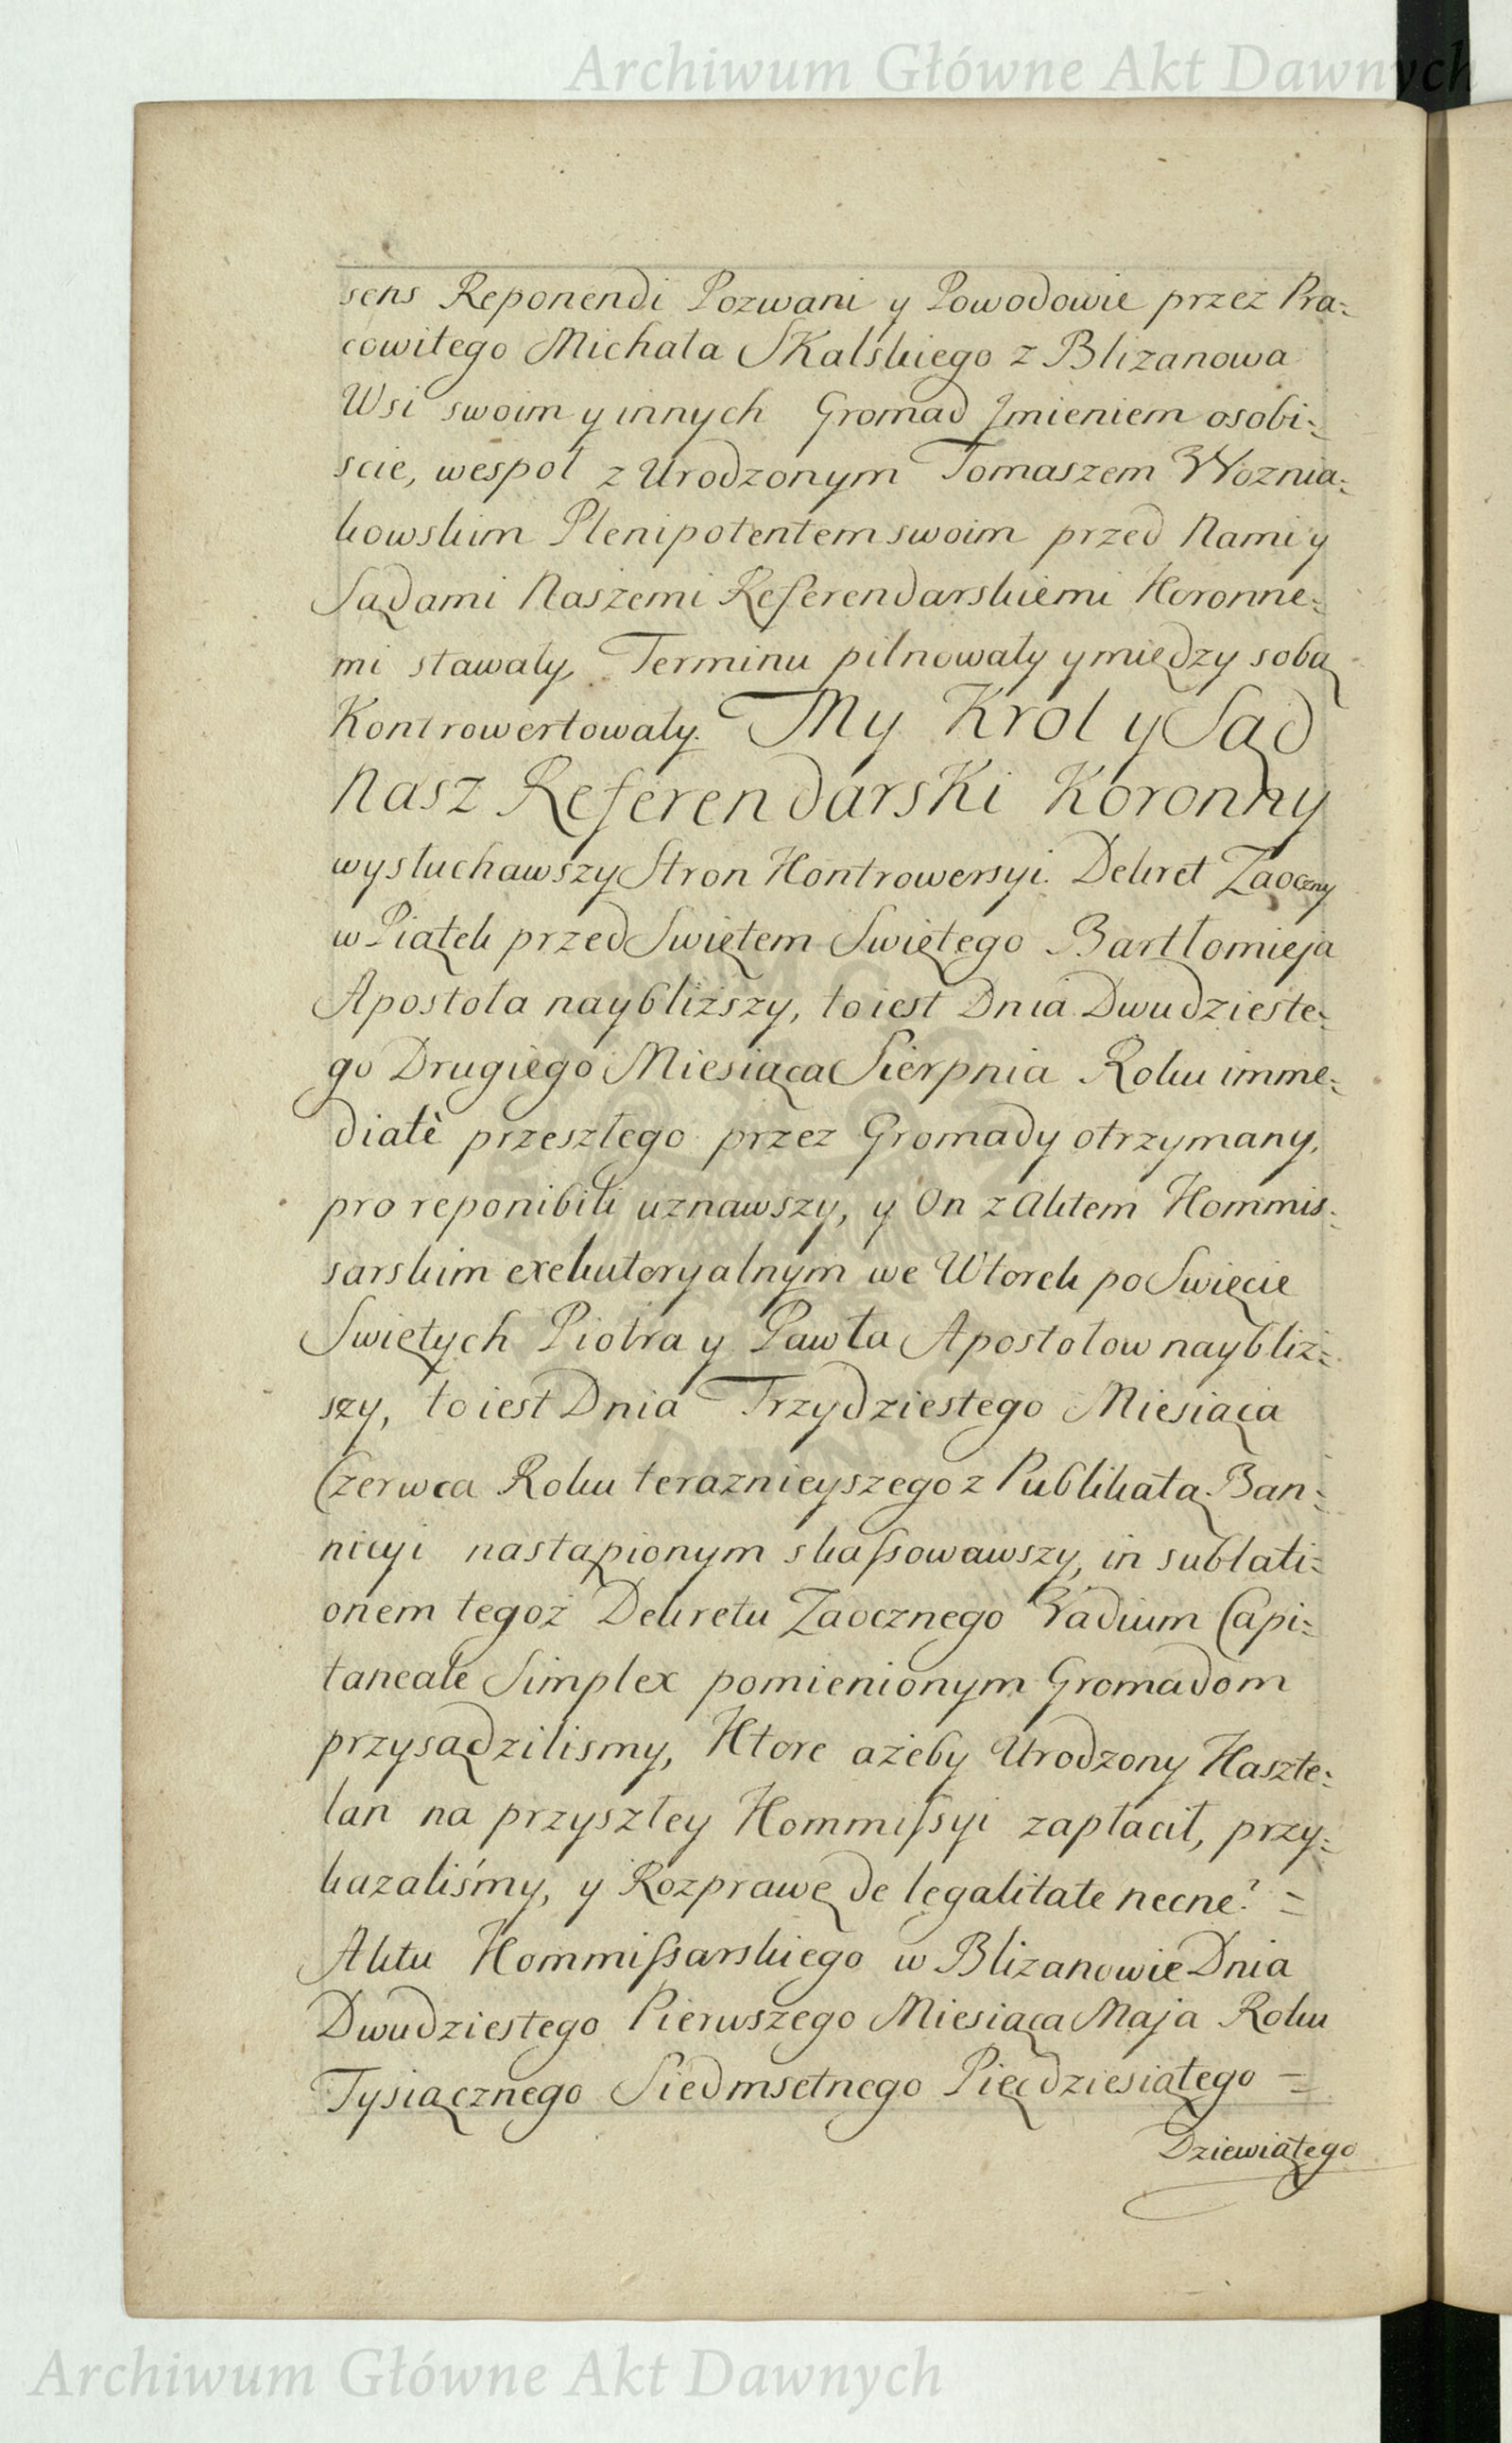 Archiwum Główne Akt Dawnych
sens Reponendi Pozwani y Powodowie przez Pra=
cowitego Michała Skalskiego z Blizanowa
Wsi swoim y innych Gromad Jmieniem osobi=
scie, wespoł z Urodzonym Tomaszem Woznia=
kowskim Plenipotentem swoim przed Nami y
Sądami Naszemi Referendarskiemi Koronne=
mi stawały, Terminu pilnowały y między sobą
Kontrowertowały. My Krol y Sąd
Nasz Referendarski Koronny
wysłuchawszy Stron Kontrowersyi. Dekret Zaoczny
w Piątek przed Swiętem Swiętego Bartłomieja
Apostoła naybliższy, to iest Dnia Dwudzieste=
go Drugiego Miesiąca Sierpnia Roku imme=
diatè przeszłego przez Gromady otrzymany,
pro reponibili uznawszy, y On z Aktem Kommis=
sarskim exekutoryalnym we Wtorek po Swięcie
Swiętych Piotra y Pawła Apostołow naybliż=
szy, to iest Dnia Trzydziestego Miesiąca
Czerwca Roku teraznieyszego z Publikatą Ban=
nicyi nastąpionym skassowawszy, in sublati=
onem tegoż Dekretu Zaocznego Vadium Capi=
taneale Simplex pomienionym Gromadom
przysądzilismy, Ktore ażeby Urodzony Kaszte=
lan na przyszłey Kommissyi zapłacił, przy=
kazaliśmy, y Rozprawę de legalitate necne? =
Aktu Kommissarskiego w Blizanowie Dnia
Dwudziestego Pierwszego Miesiąca Maja Roku
Tysiącznego Siedmsetnego Pięcdziesiątego =
Dziewiątego
Archiwum Główne Akt Dawnych